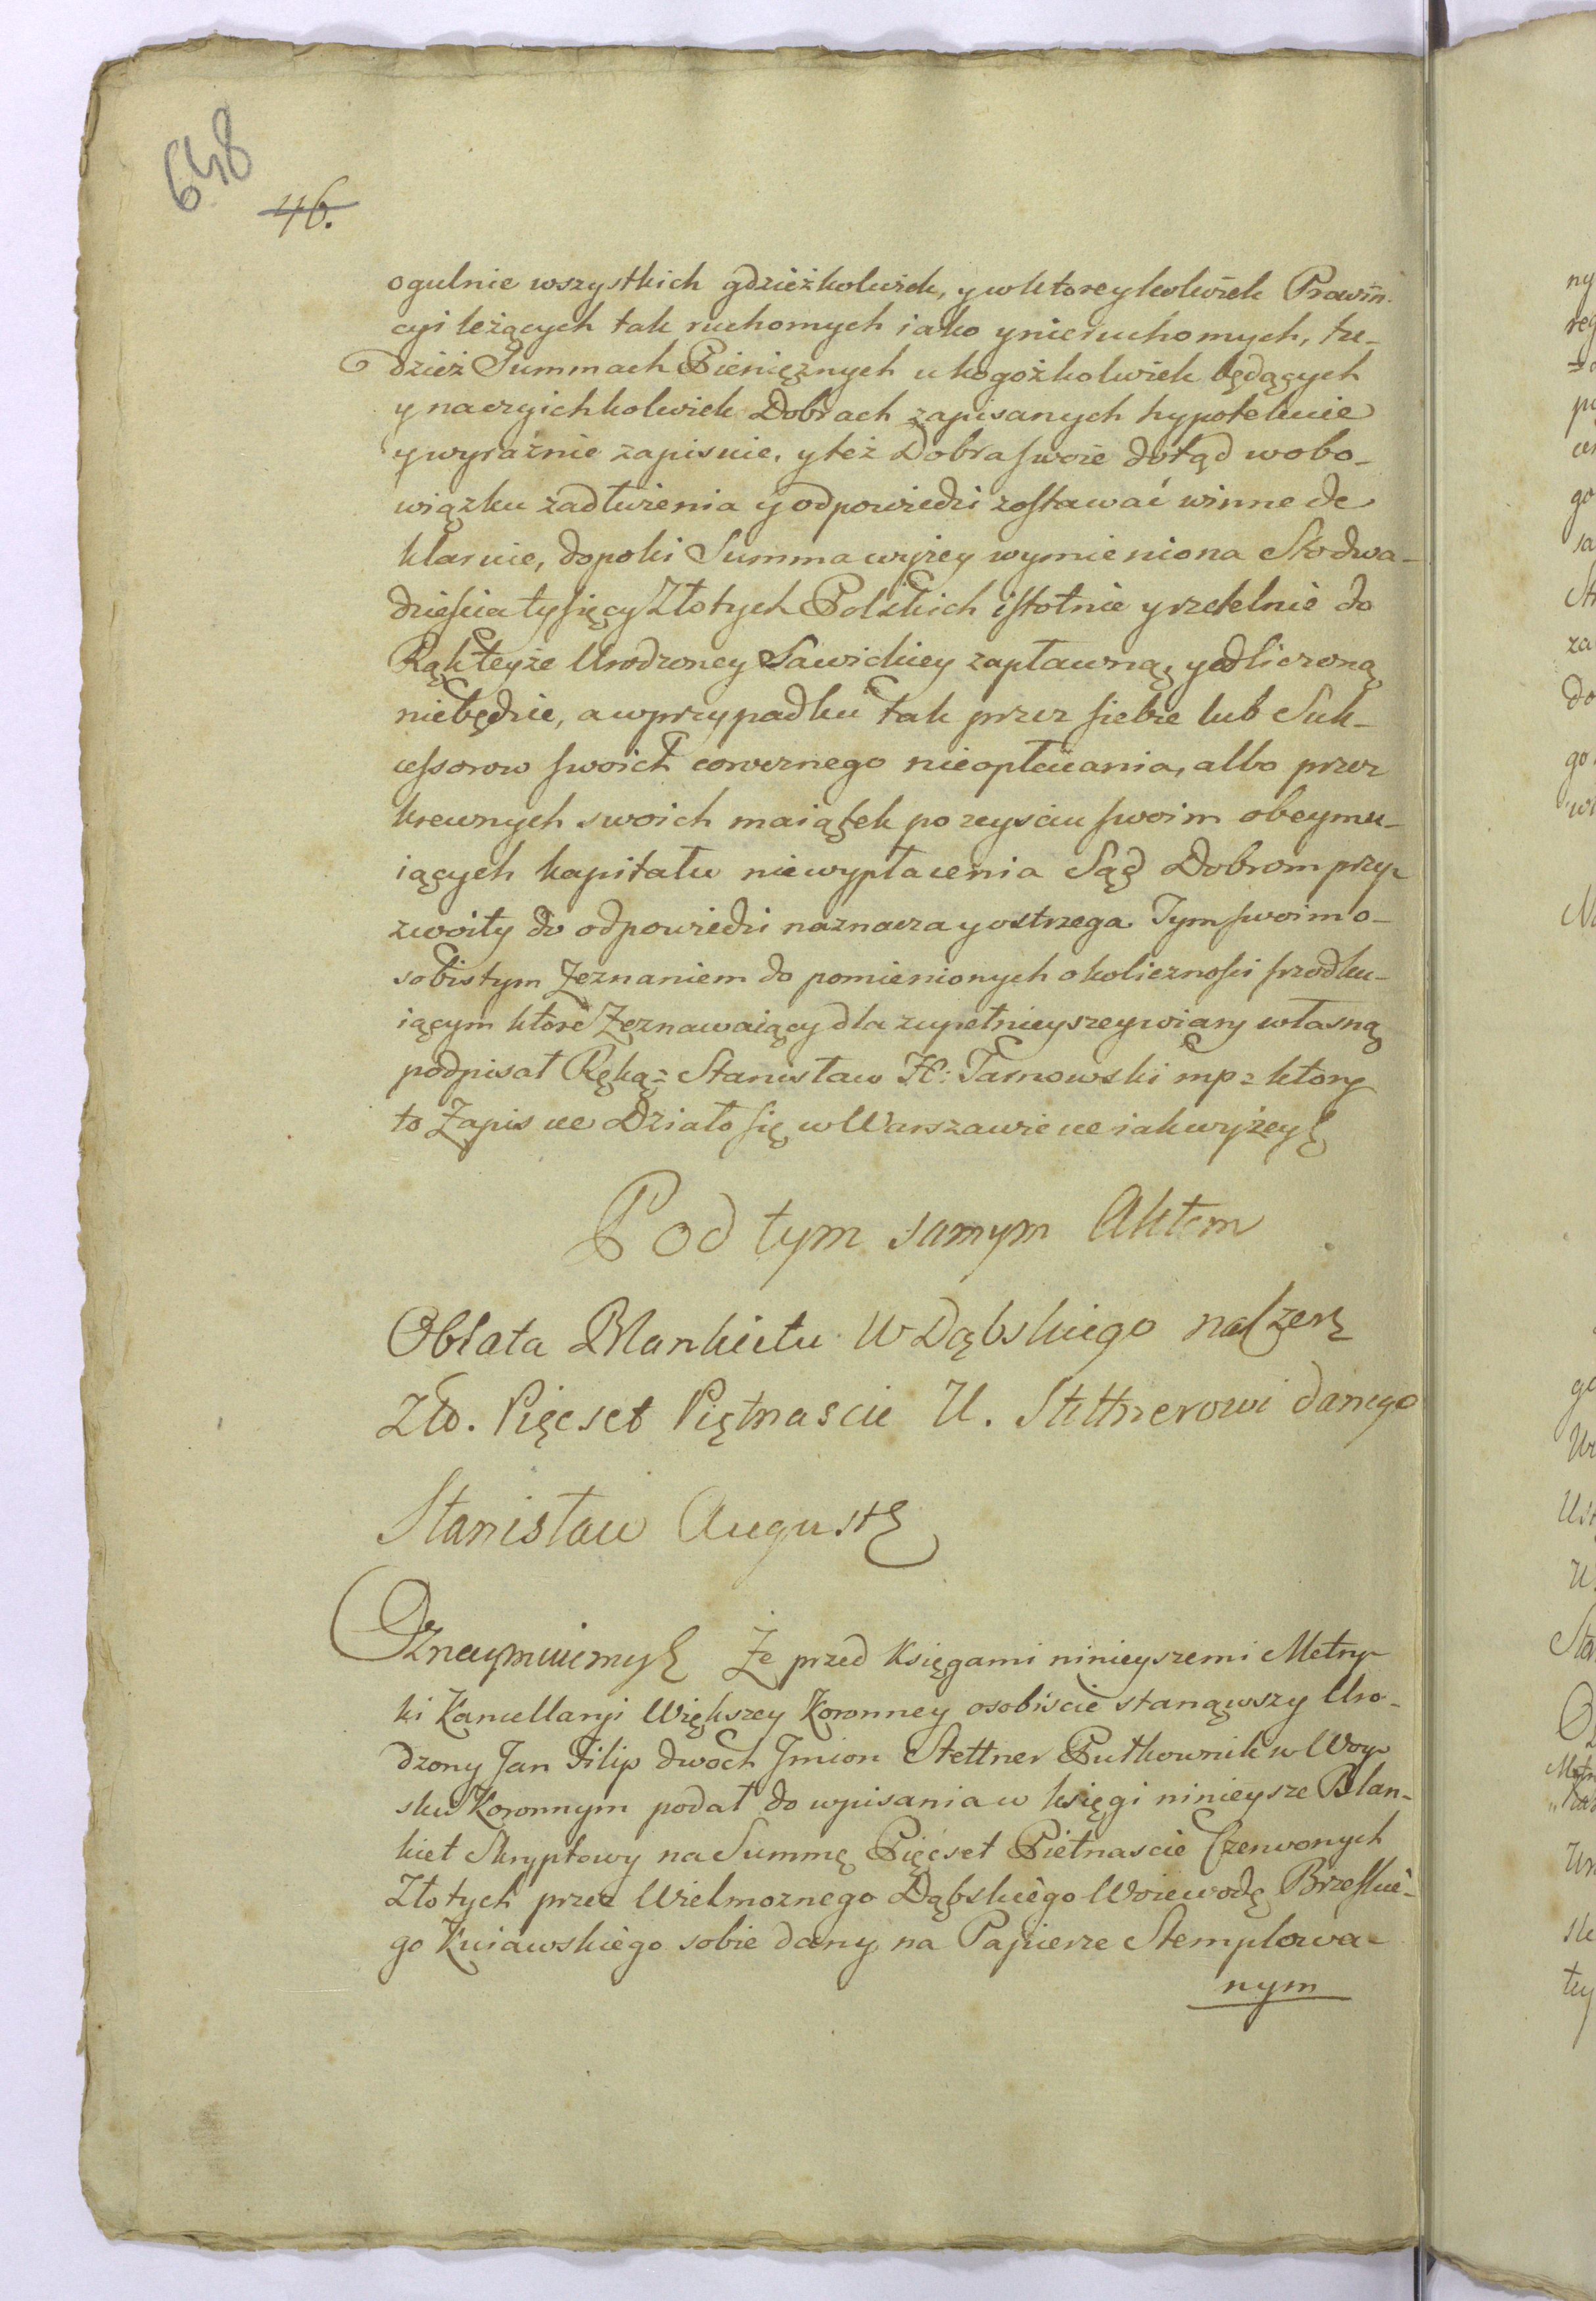 648
46.
ogulnie wszystkich gdzieżkolwiek, y w ktoreykolwiek Prowin-
cyi leżących tak ruchomych iako y nieruchomych, tu-
dzież Summach Pieniężnych u kogożkolwiek będących
y na czyichkolwiek Dobrach zapisanych hypotekuie
y wyraźnie zapisuie, y też Dobra swoie dotąd w obo-
wiązku zadłużenia y odpowiedzi zostawać winne de
klaruie, dopoki Summa wyżey wymieniona Sto dwa-
dzieścia tysięcy Złotych Polskich istotnie y rzetelnie do
Rąk teyże Urodzoney Sawickiey zapłaconą y odliczoną
niebędzie, a w przypadku tak przez siebie lub Suk-
cessorow swoich corocznego nieopłacania, albo przez
krewnych swoich maiątek po zeysciu swoim obeymu-
iących kapitału niewypłacenia Sąd Dobrom przy-
zwoity do odpowiedzi naznacza y ostrzega Tym swoim o-
sobistym Zeznaniem do pomienionych okoliczności srodku-
iącym ktore Zeznawaiący dla zupełnieyszey wiary własną
podpisał Ręką: Stanisław H: Tarnowski mp: ktory
to Zapis ue Działo się w Warszawie ue iak wyżey
Pod tym samym Aktem
Oblata Blankietu W Dąbskiego na Czer
Zło. Pięcset Piętnascie U. Stettnerowi danego
Stanisław August
Oznaymuiemy Że przed Księgami ninieyszemi Metry-
ki Kancellaryi Większey Koronney osobiście stanąwszy Uro-
dzony Jan Filip dwoch Jmion Stettner Pułkownik w Woy-
sku Koronnym podał do wpisania w księgi ninieysze Blan-
kiet Skryptowy na Summę Pięcset Pietnascie Czerwonych
Złotych przez Wielmoznego Dąbskiego Woiewodę Brzeskie-
go Kuiawskiego sobie dany na Papierze Stemplowa-
nym